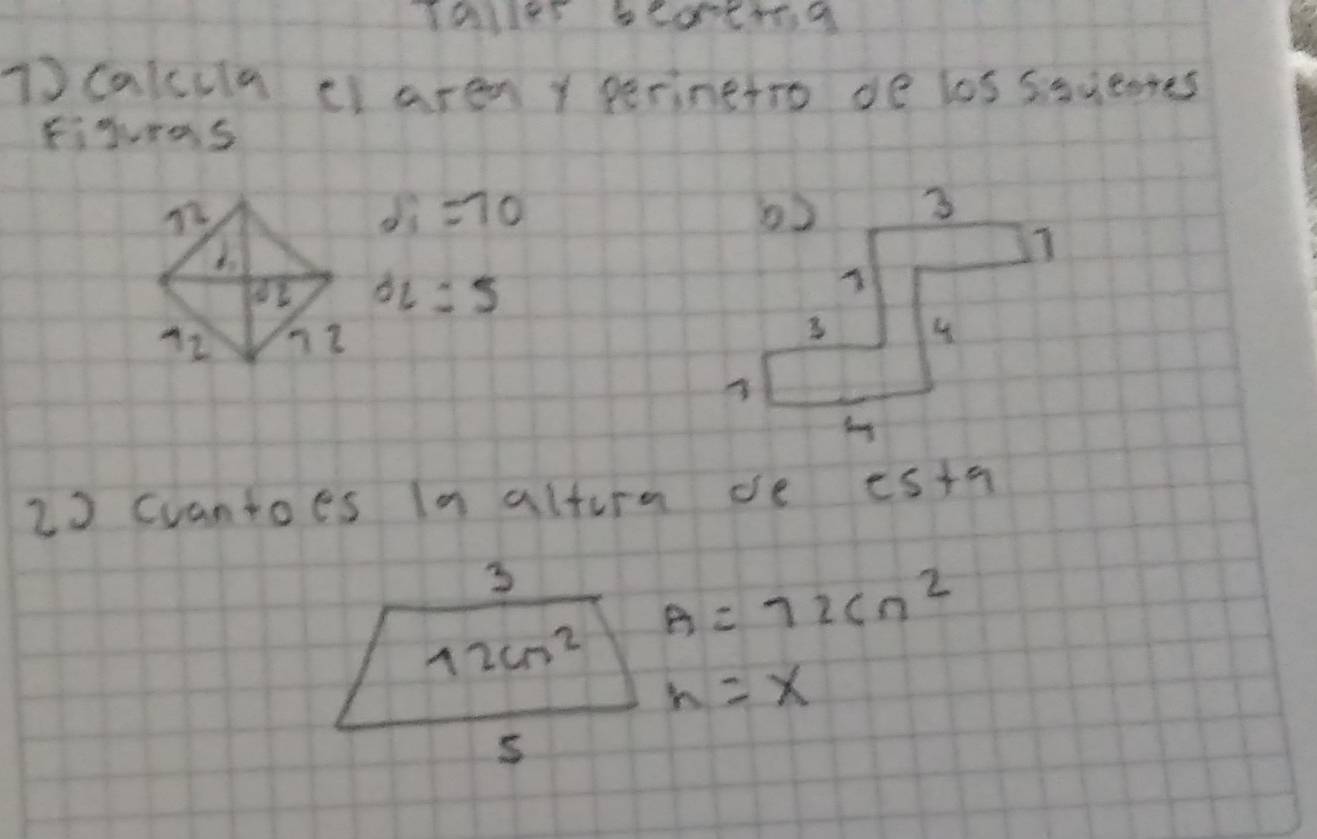 Taller Geometria
1) Calcula el area y perinetro de los siguientes
Figuras
12 d1 = 10 b) 3
d1 1
d2 d2 = 5 1
12 12 3 4
1
4
2) Cuanto es la altura de esta
3
12cm² A = 12cm²
h = x
5